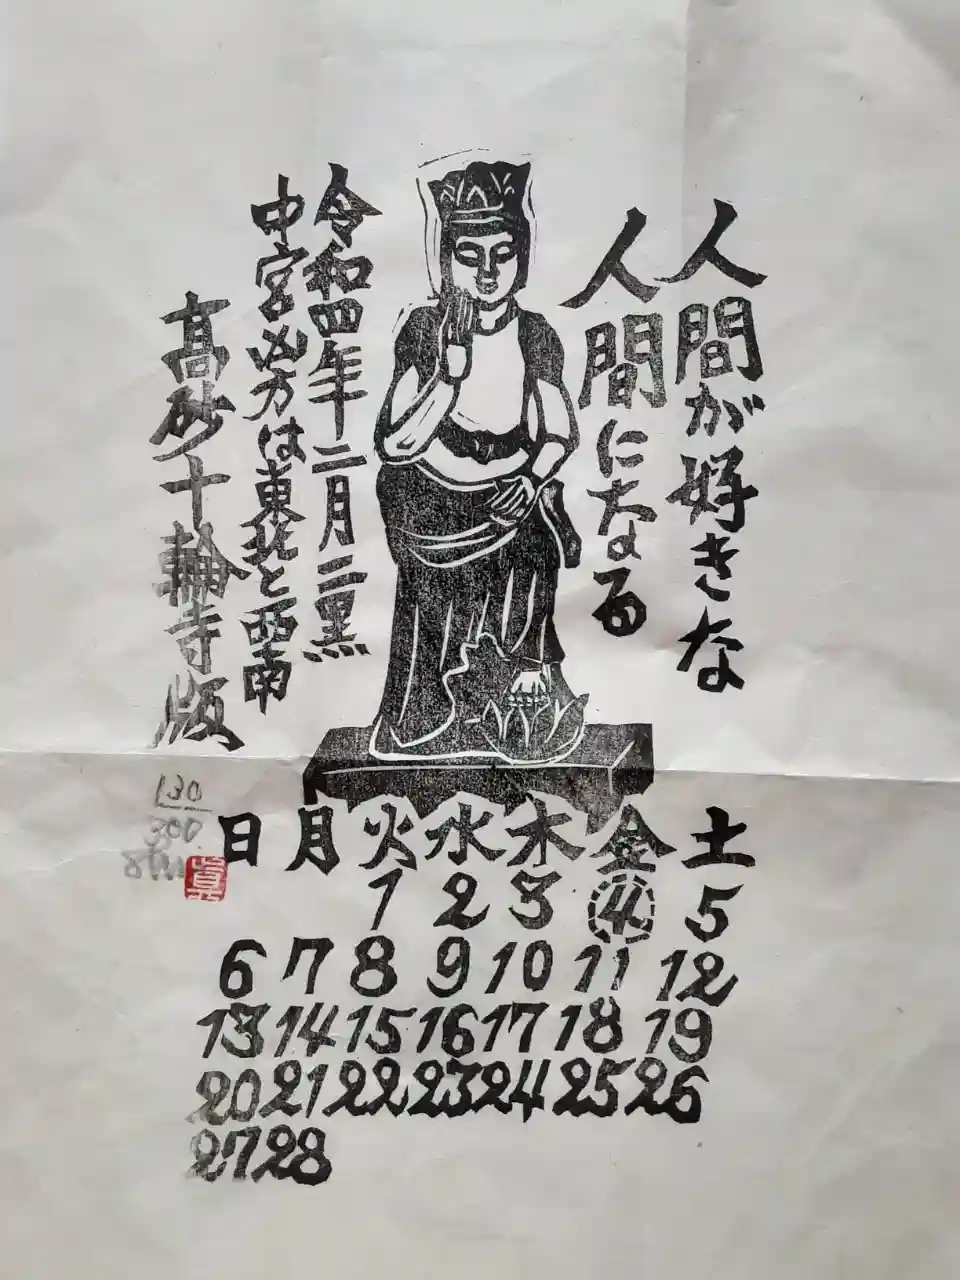 人間が好きな
人間になる
令和四年二月二黒
中宮凶方は東北と西南
髙砂十輪寺版
130
300
日 月 火 水 木 金 土
1 2 3 4 5
6 7 8 9 10 11 12
13 14 15 16 17 18 19
20 21 22 23 24 25 26
27 28